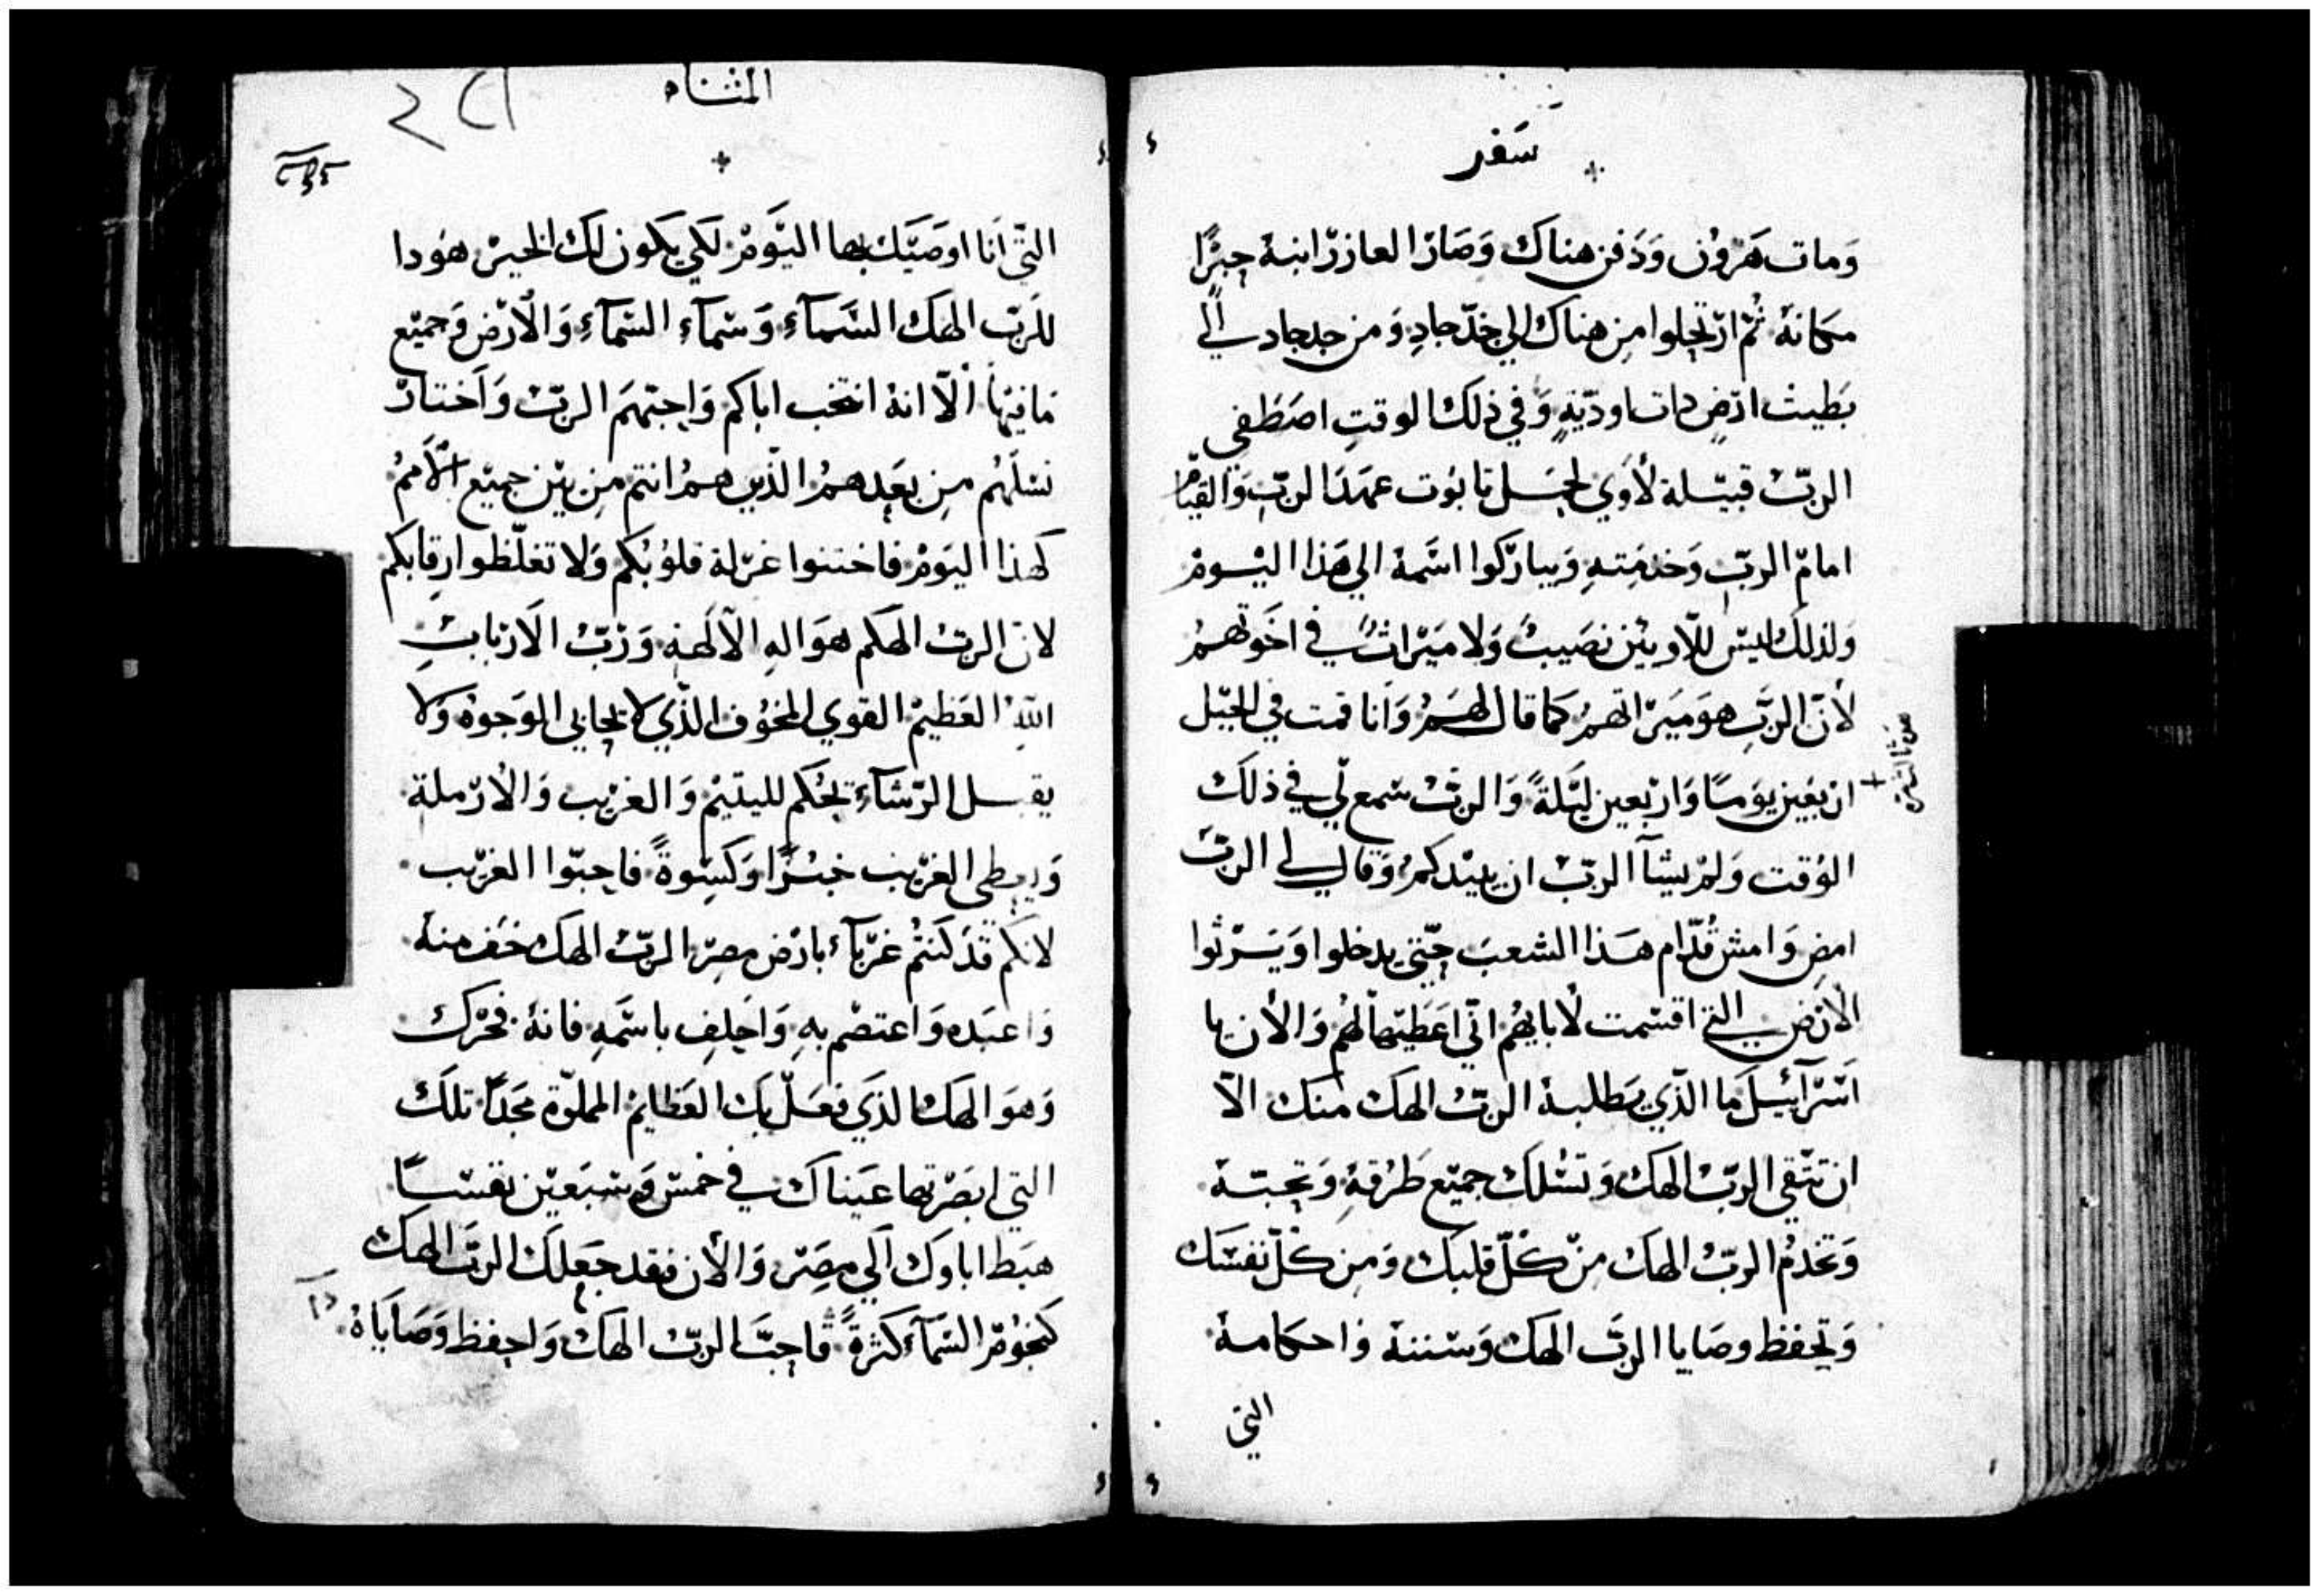 سَفر
وَمات هَرون وَدَفن هناك وَصَار العازر ابنهُ حِبرًا
مكانهُ ثُم ارتحلوا مِن هناك الي جدجادِ وَمن جدجاد الي
بَطيث ارضٍ ذات اوديةٍ وَفي ذلك الوقتِ اصطفي
الربّ قبيلة لاوي لحمل تابوت عهد الربّ وَالقيام
امام الربّ وَخدمتهِ وَيباركوا اسمهُ الي هَذا اليوم
وَلذلك ليس للاويين نصَيبٌ وَلا ميراثٌ في اخوتهم
لأن الربّ هوَ ميراثهم كما قال لهم وَانا قمت في الجبل
اربعين يومًا وَاربعين ليلةً وَالربّ سمع لي في ذلك
الوقت وَلم يشآ الربّ ان يبيدكم وَقال لي الربّ
امضِ وَامش قُدّام هَذا الشعبَ حتي يدخلوا وَيرثوا
الارض التي اقسمت لابايهم اني اعطيها لهم وَالأن يا
اسرآئيل ما الذي يطلبهُ الربّ الهك منك الاّ
ان تتقي الربّ الهك وَتسلك جميع طرقهِ وَتحبهُ
وَتخدمُ الربّ الهك من كلّ قلبك وَمن كلّ نفسك
وَتحفظ وصَايا الربّ الهك وَسننهُ واحكامهُ
التي
المثناه
التي أنا اوصَيك بها اليَوم لكي يكون لك الخير هودا
للربّ الهك السَّمآءِ وَسمآءِ السمآءِ وَالأرض وَجميع
مافيها ألاّ انهُ انتخب اباكم وَاحبهم الربّ وَاختار
نسلهم مِن بعدهم الذين هم انتم مِن بين جميع الأمم
كهذا اليوم فاختنوا غرلة قلوبكم وَلا تغلّظوا رقابكم
لانّ الربّ الهكم هوَ الهِ الآلهةِ وَربّ الاربابِ
اللهُ العَظيم القوي المخوف الذي لا يحابي الوَجوه وَلا
يقبل الرشآءِ يحكم لليتيم وَالغريب وَالأرملة
وَيعطي الغريب خبزًا وَكسوةً فاحبّوا الغريب
لانكم قد كنتُم غربآء بارض مصر الربّ الهك خف منهُ
وَاعبده وَاعتصم بهِ وَاحلف باسمهِ فانهُ فخرك
وَهوَ الهك الذي فعَل بك العَظايم المملوّة مجدًا تلك
التي ابصَرتها عَيناك في خمس وَسبعين نفسًا
هبَط اباوك الي مِصر وَالأن فقد جعلك الربّ الهك
كنجوم السمآء كثرةً فاحبّ الربّ الهك وَاحفظ وَصَاياهُ